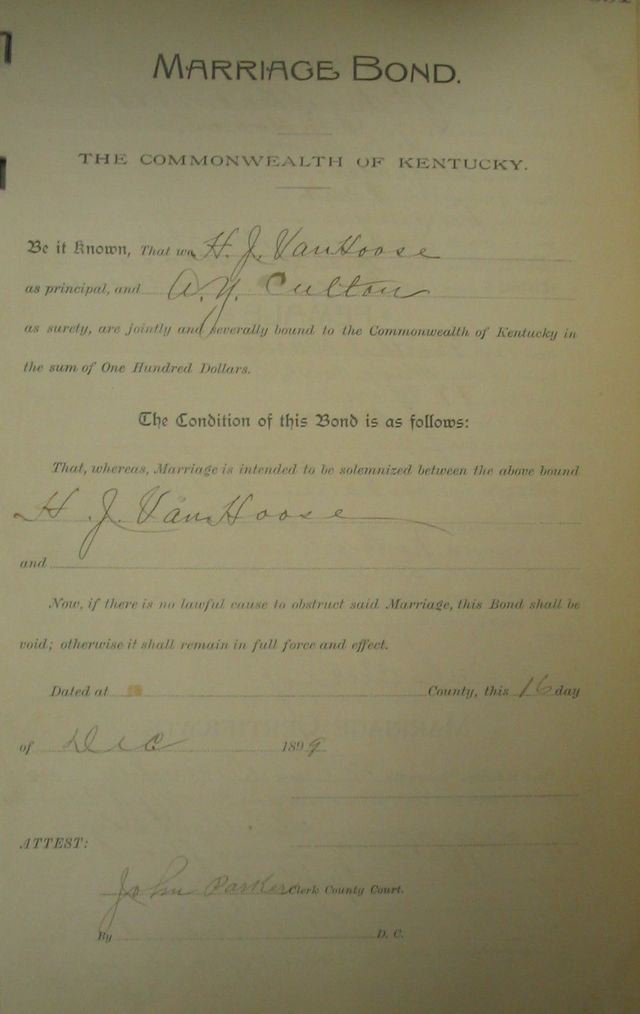 MARRIAGE BOND.
THE COMMONWEALTH OF KENTUCKY.
Be it Known, That we H. J. VanHoose
as principal, and A. Y. Culton
as surety, are jointly and severally bound to the Commonwealth of Kentucky in
the sum of One Hundred Dollars.
The Condition of this Bond is as follows:
That, whereas, Marriage is intended to be solemnized between the above bound
H. J. VanHoose
and
Now, if there is no lawful cause to obstruct said Marriage, this Bond shall be
void; otherwise it shall remain in full force and effect.
Dated at County, this 16 day
of Dec 1899
ATTEST:
John Parker Clerk County Court.
By D. C.